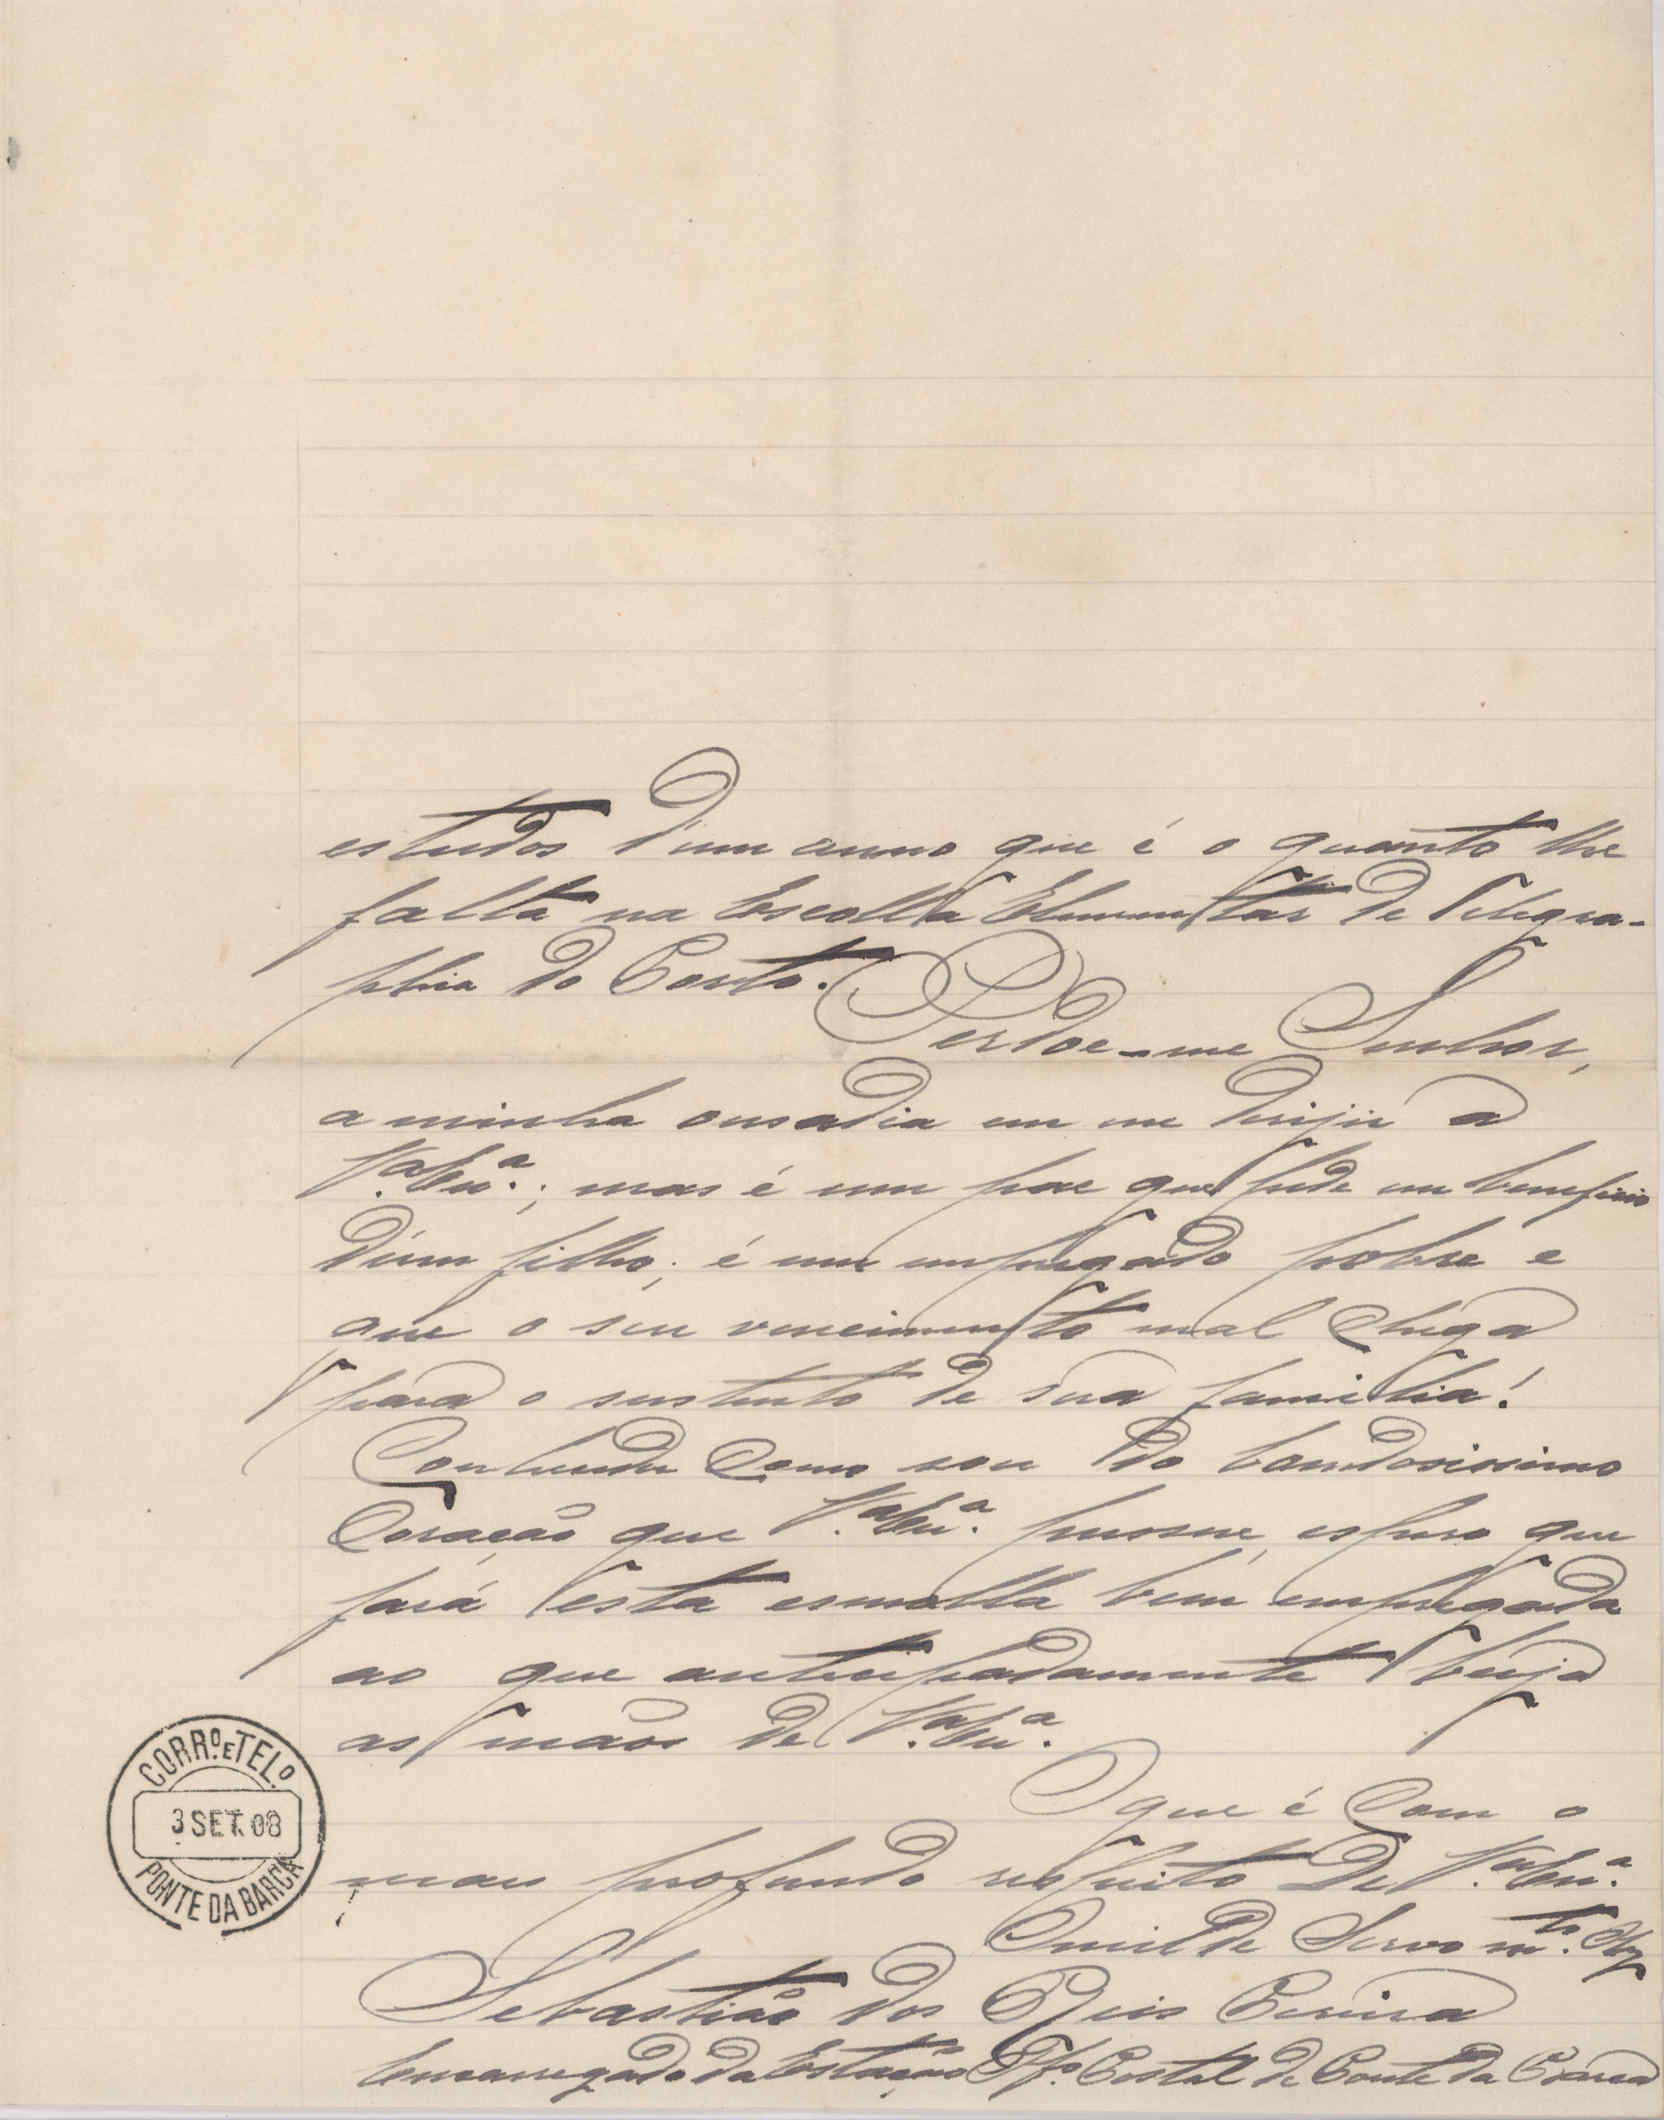 estudos d'um anno que é o quanto lhe
falta na Escolla Elementar de Telegra-
phia do Porto.
Perdoe-me Senhor,
a minha ousadia em me dirijir a
V.ª Ex.ª; mas é um pae que pede em beneficio
d'um filho; é um empregado pobre e
que o seu vencimento mal chega
para o sustento de sua familia!
Conhecedor como sou do bondosissimo
Coração que V.ª Ex.ª possue, espero que
fará esta esmolla bem empregada
ao que antecipadamente beija
as mãos de V.ª Ex.ª.
O que é com o
mais profundo respeito De V.ª Ex.ª
Omilde Servo m.to Obg
Sebastião dos Reis Pereira
Encarregado da Estação Tf.º Postal de Ponte da Barca
CORR.º E TEL.º
3 SET. 08
PONTE DA BARCA